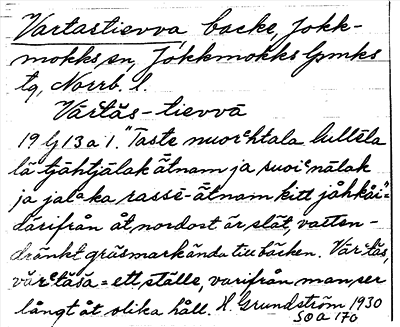 Vartastievva backe, Jokk-
mokks sn, Jokkmokks lpmks
tg, Norrb. l.
Värtās-tievvā
19 G 13 a 1. "Taste nuorᵉhtala lullēla
lä tjåhtjālak ätnam ja suoiᵉnālak
ja jalᵃka rassē-ätnam kitt jåhkåi"=
därifrån åt nordost är slät, vatten-
dränkt gräsmark ända till bäcken. Värᵉtas,
värᵉtāsa = ett ställe, varifrån man ser
långt åt olika håll. H. Grundström 1930
SOA 170